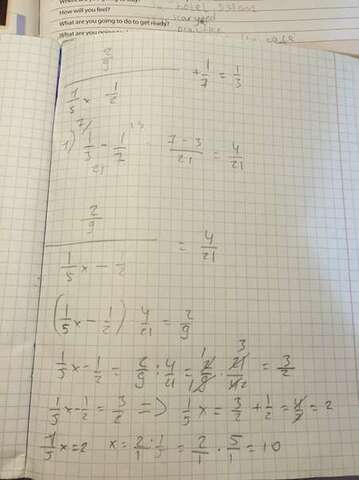 How will you feel?
What are you going to do to get ready?
What are you
2/9
1/5 x 1/2
+ 1/7 = 1/3
1) 1/3 - 1/7 7 - 3/21 = 4/21
2/9
1/5 x - 1/2
= 4/21
(1/5 x - 1/2) 4/21 = 2/9
1/5 x - 1/2 = 2/9 : 4/21 = 2/9 · 21/4 = 3/2
1/5 x - 1/2 = 3/2 => 1/5 x = 3/2 + 1/2 = 4/2 = 2
1/5 x = 2 x = 2/1 : 1/5 = 2/1 · 5/1 = 10